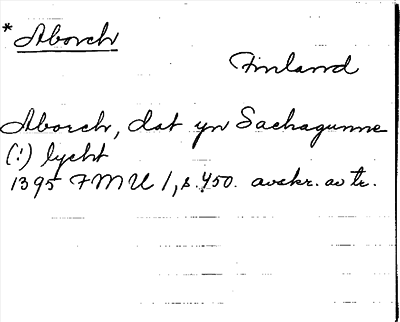 * Aborch
Finland
Aborch, dat yn Sachagunne
(!) lycht
1395 FMU 1, s. 450. avskr. av tr.